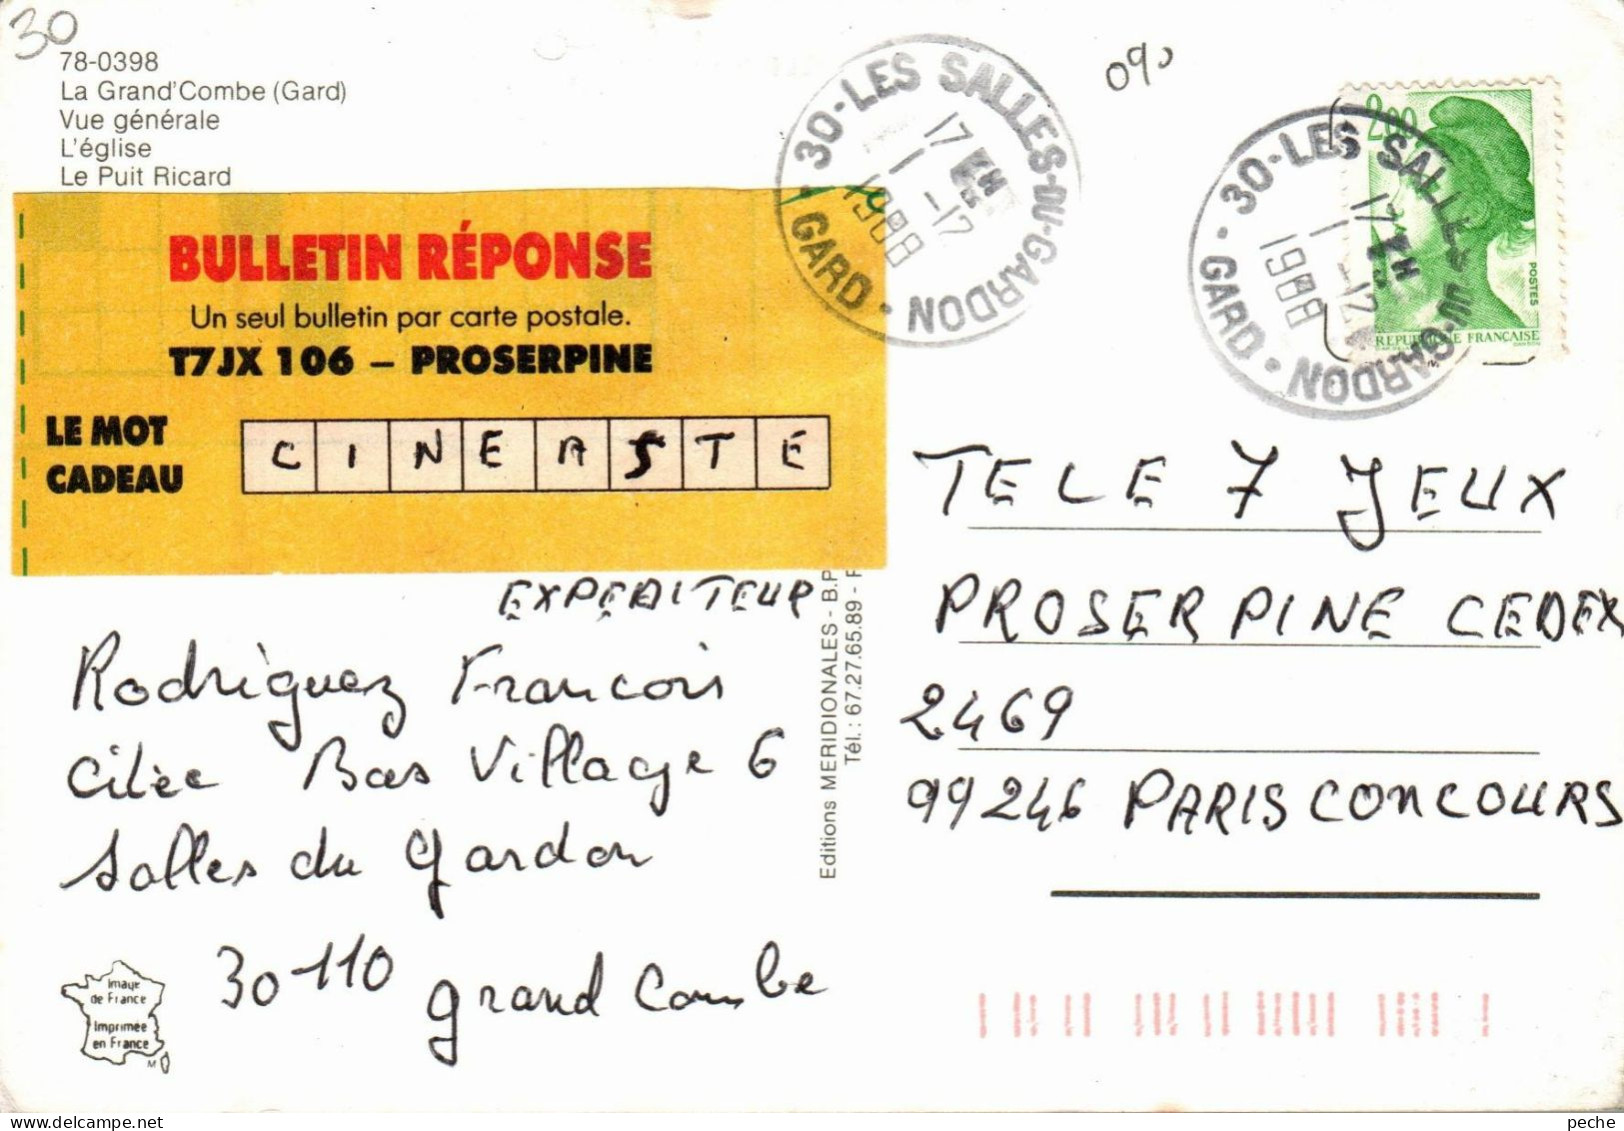 30
78-0398
La Grand'Combe (Gard)
Vue générale
L'église
Le Puit Ricard
BULLETIN RÉPONSE
Un seul bulletin par carte postale.
T7JX 106 – PROSERPINE
LE MOT
CADEAU
CINEASTE
30-LES SALLES-DU-GARDON
GARD
17 H
1-12
1988
090
30-LES SALLES-DU-GARDON
GARD
17 H
1-12
1988
2,00
POSTES
REPUBLIQUE FRANÇAISE
TELE 7 JEUX
PROSERPINE CEDEX
2469
99246 PARIS CONCOURS
EXPEDITEUR
Rodriguez Francois
Citée Bas Village 6
Salles du gardon
30110 grand Combe
Editions MERIDIONALES - B.P
Tél. : 67.27.65.89 -
Image
de France
Imprimée
en France
M
peche